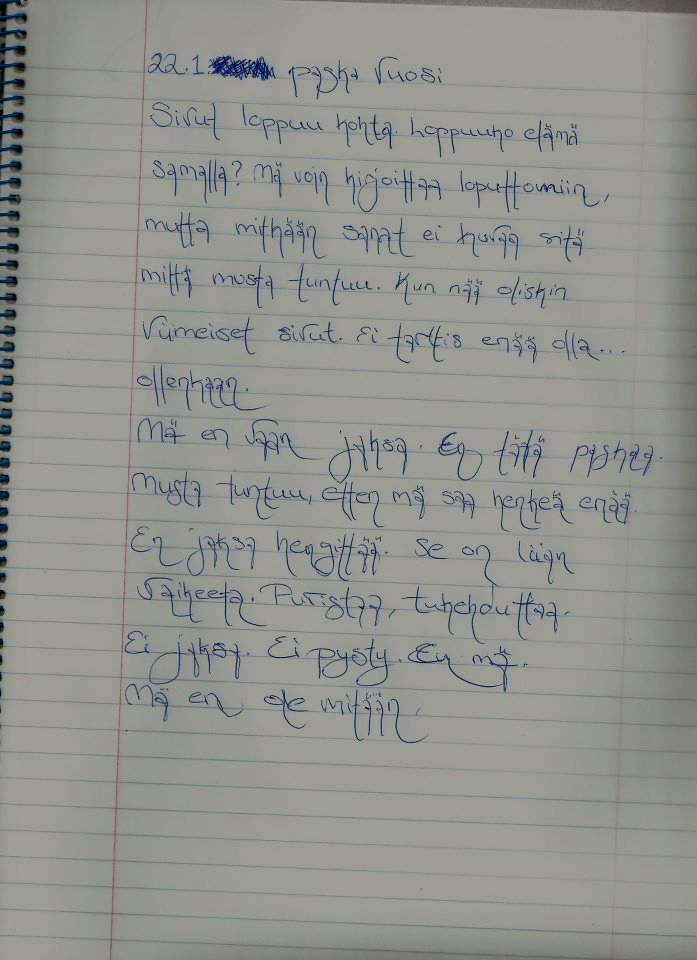 22.1. paska vuosi
Sivut loppuu kohta. Loppuuko elämä
samalla? Mä voin kirjoittaa loputtomiin,
mutta mitkään sanat ei kuvaa sitä
miltä musta tuntuu. Kun nää oliskin
viimeiset sivut. Ei tarttis enää olla...
ollenkaan.
Mä en vaan jaksa. En tätä paskaa.
Musta tuntuu, etten mä saa henkeä enää.
En jaksa hengittää. Se on liian
vaikeeta. Puristaa, tukehduttaa.
Ei jaksa. Ei pysty. En mä.
Mä en ole mitään.